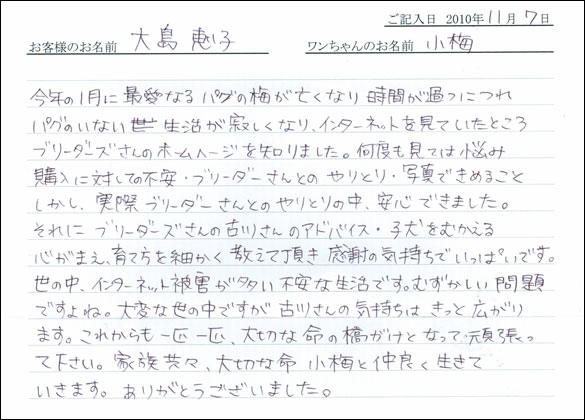 ご記入日 2010年11月7日
お客様のお名前 大島 恵子 ワンちゃんのお名前 小梅
今年の1月に最愛なるパグの梅が亡くなり時間が過つにつれ
パグのいない生活が寂しくなり、インターネットを見ていたところ
ブリーダーズさんのホームページを知りました。何度も見ては悩み
購入に対しての不安・ブリーダーさんとのやりとり・写真できめること
しかし、実際ブリーダーさんとのやりとりの中、安心できました。
それにブリーダーズさんの古川さんのアドバイス・子犬をむかえる
心がまえ、育て方を細かく教えて頂き感謝の気持ちでいっぱいです。
世の中、インターネット被害が多い不安な生活です。むずかしい問題
ですよね。大変な世の中ですが古川さんの気持ちはきっと広がり
ます。これからも一匹一匹、大切な命の橋がけとなって頑張っ
て下さい。家族共々、大切な命小梅と仲良く生きて
いきます。ありがとうございました。